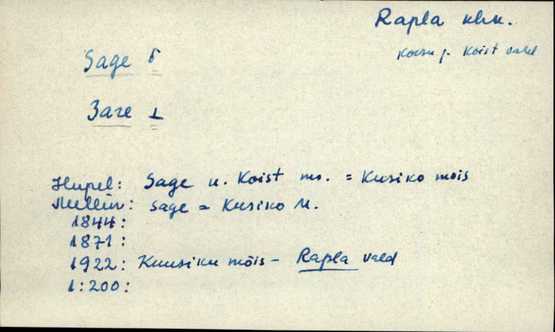 Rapla khk.
Koist vald
Sage 6
Заге 1
Hupel: Sage u. Koist ms. = Kusiko mois
Mellin: Sage = Kusiko M.
1844:
1871:
1922: Kuusiku mõis - Rapla vald
1:200: